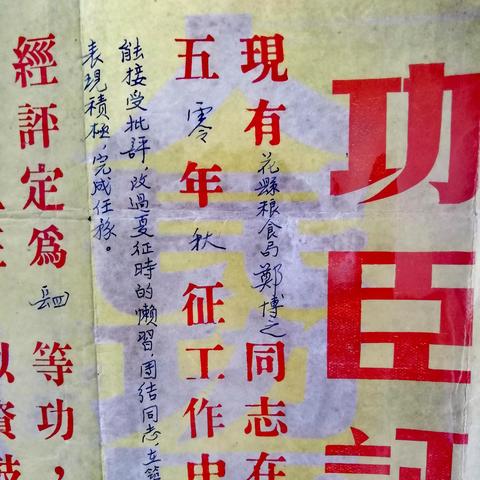 功臣
現有花縣粮食局鄭博之同志在
五零年秋征工作中
能接受批評,改過夏征時的懶習,團结同志,立
表現積極,完成任務。
經評定為等功,
以資鼓